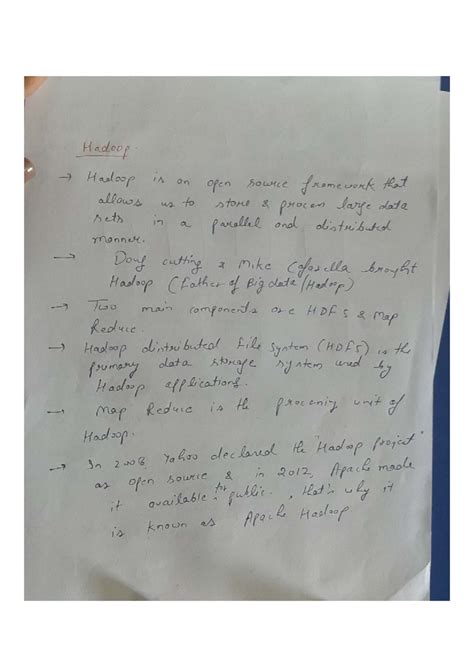 Hadoop.
→ Hadoop is an open source framework that
allows us to store & process large data
sets in a parallel and distributed
manner.
→ Doug cutting & Mike Cafarella brought
Hadoop (Father of Big data/Hadoop)
→ Two main components are HDFS & Map
Reduce.
→ Hadoop distributed File System (HDFS) is the
primary data storage system used by
Hadoop applications.
→ Map Reduce is the processing unit of
Hadoop.
→ In 2008, Yahoo declared the "Hadoop project"
as open source & in 2012, Apache made
it available for public. , that's why it
is known as Apache Hadoop